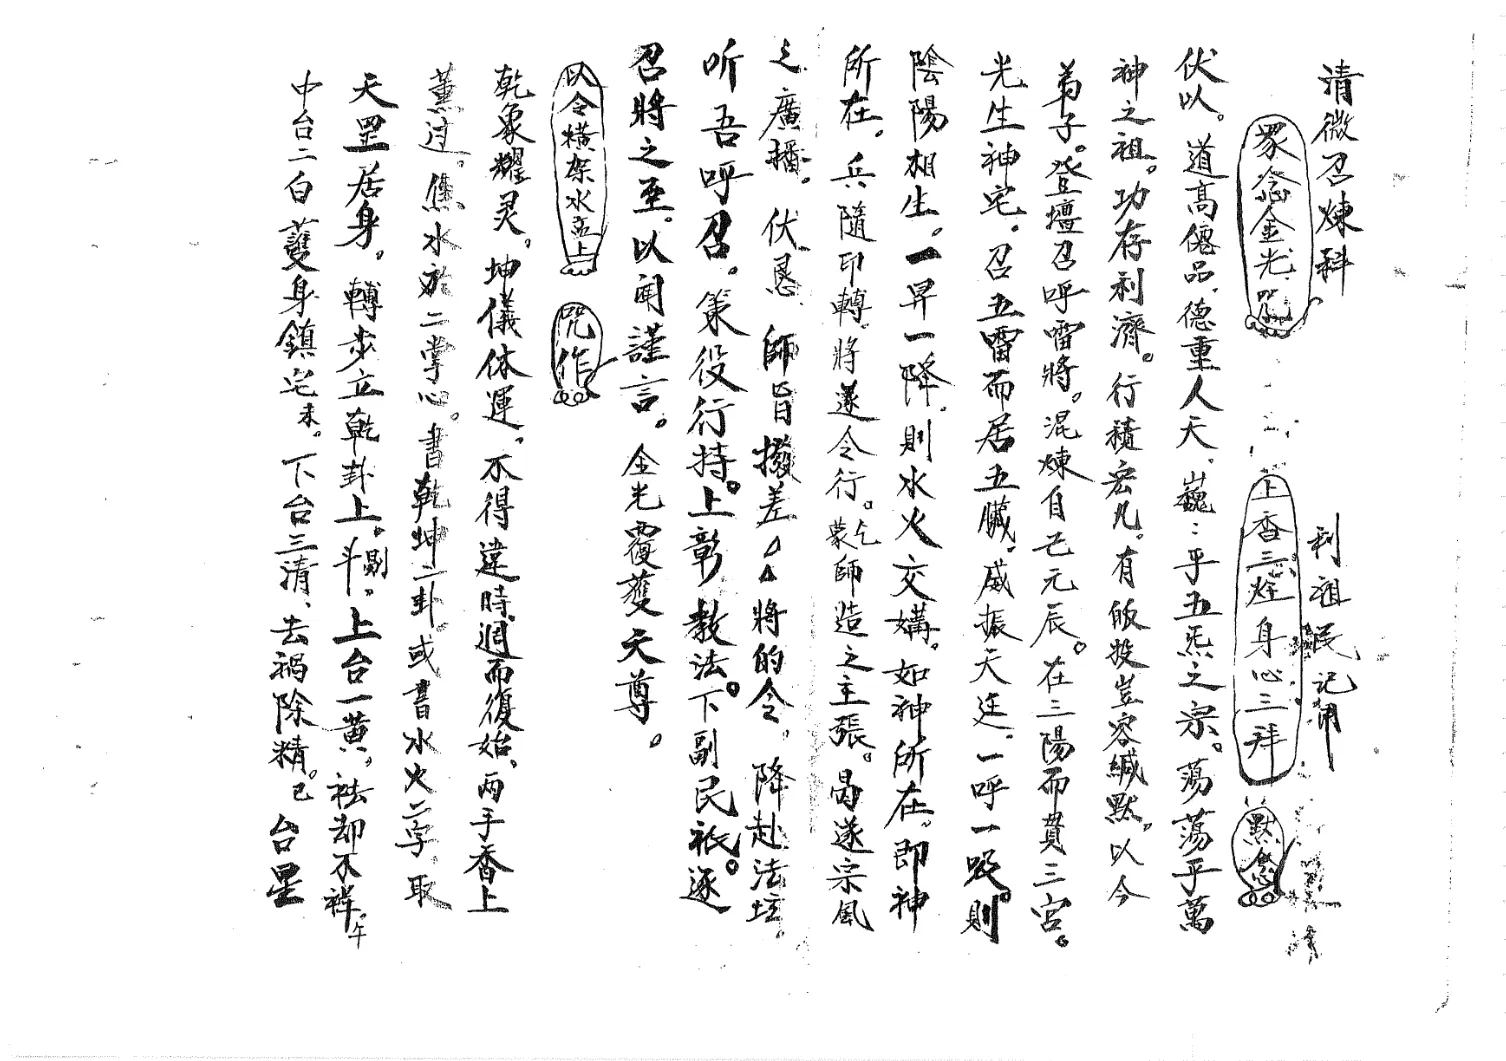 清微召煉科
利祖民记用
眾念金光咒 上香三炷身心三拜 默念
伏以。道高僊品,德重人天,巍:乎五炁之宗。荡荡乎萬
神之祖。功存利濟。行積宏凡。有皈投豈容緘默,以今
弟子。登壇召呼雷將。混煉自己元辰。在三陽而貫三宮。
光生神宅,召五雷而居五臟,威振天廷,一呼一吸。則
陰陽相生。一昇一降,則水火交媾。如神所在,即神
所在,兵隨印轉,將遂令行。乞蒙師造之主張。曷遂宗風
之廣播。伏恳 師旨撥差△△將的令,降赴法坛,
听吾呼召。策役行持。上彰教法。下副民祇。逐
召將之至,以闻謹言。金光覆護天尊。
以令橫架水盂上 咒作
乾象耀灵,坤儀体運,不得違時,週而復始,两手香上
薰过。焦水於二掌心。書乾坤二卦或書水火二字取
天罡居身,轉步立乾卦上,剔斗。上台一黄,祛却不祥。午
中台二白護身鎮宅未。下台三清,去祸除精。已 台星